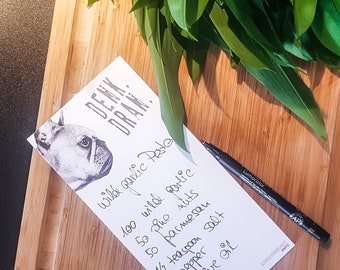 DENK.
DRAN.
wild garlic Pesto
100 wild garlic
50 pine nuts
50 parmesan
teaspoon salt
oil